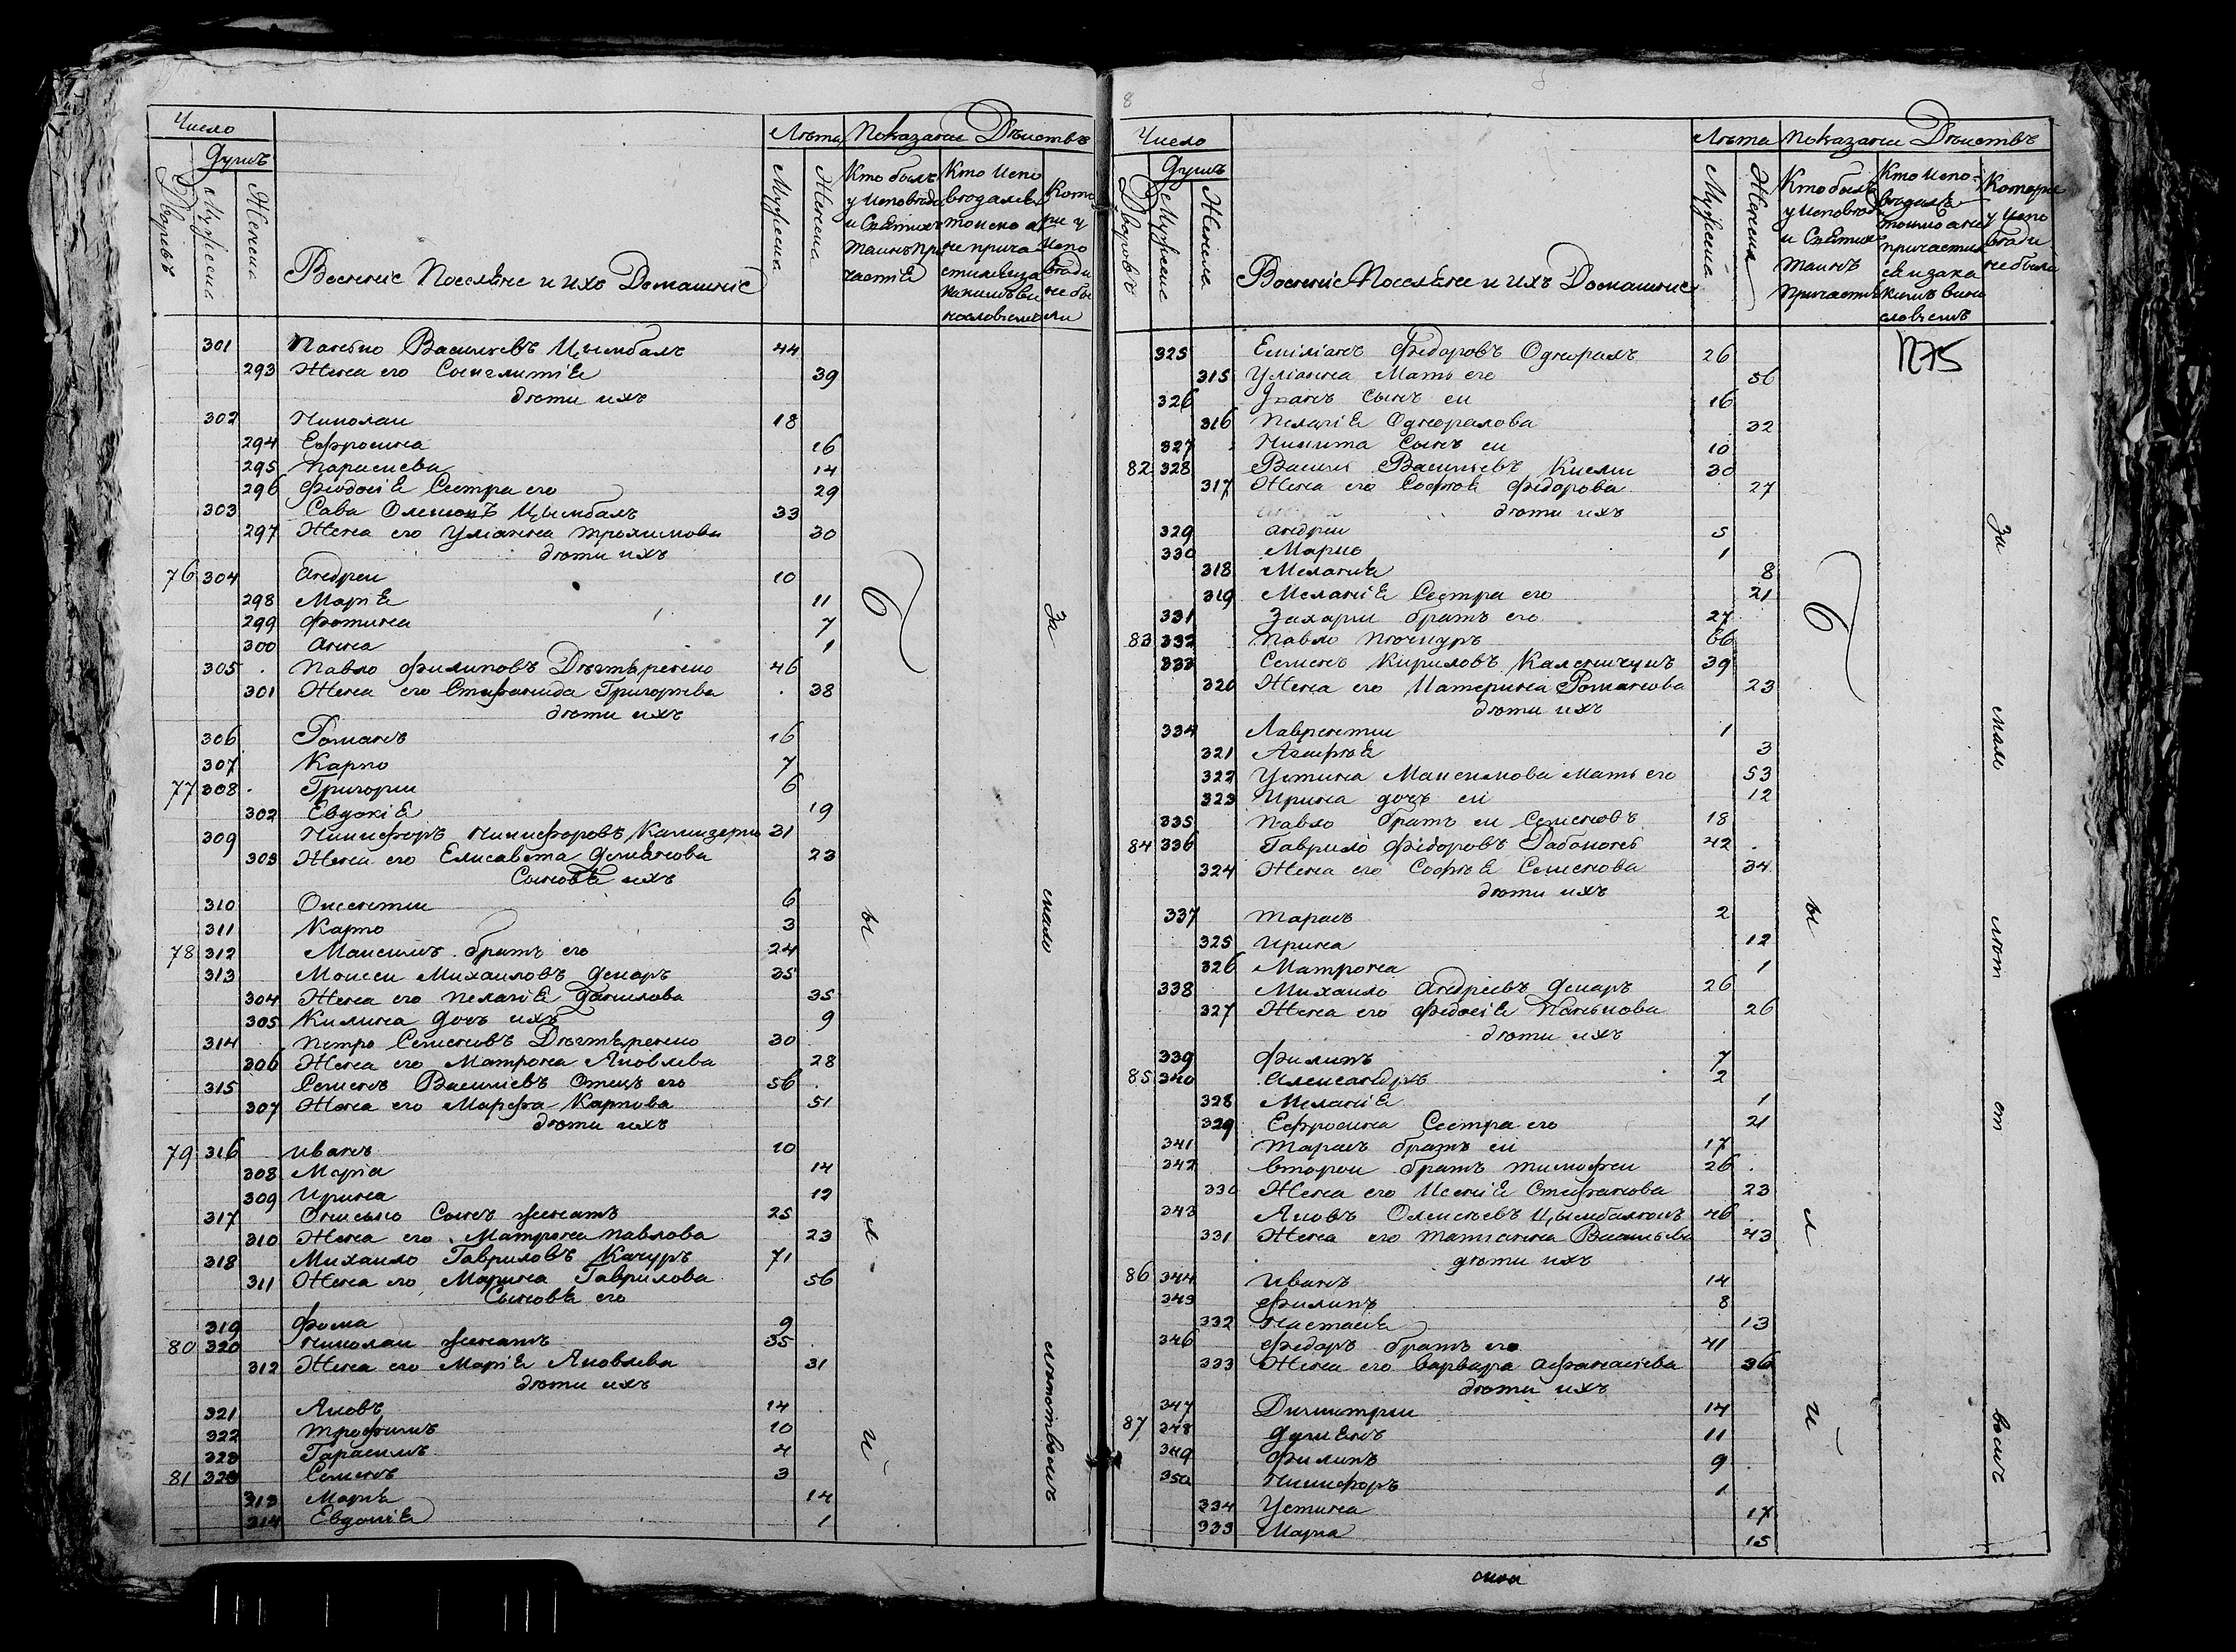 Число
Душъ
Лѣта
Показание Дѣиствъ
Дворовъ
Мужеска
Женска
Военние Поселяне и ихъ Домашние
Мужеска
Женска
Кто былъ
у исповѣди
и Святихъ
таинъ при
частія
Кто испо
вѣдался
токмо а
не прича
стился и за
какимъ ви
нословіемъ
Кото
рие у
испо
вѣди
не бы
ли
301 Василиевъ Цымбалъ 44
293 Жена его Сынглитиѣ 39
дѣти ихъ
302 Николаи 18
294 Ефросина 16
295 Параскева 14
296 Феодосіѣ Сестра его 29
303 Сава Цымбалъ 33
297 Жена его Уліанна Трохимова 30
дѣти ихъ
76 304 Андреи 10
298 Маріѣ 11
299 Фотина 7
300 Анна 1
305 Павло Филиповъ Дѣгтѣренко 46
301 Жена его Стефанида Григорѣева 38
дѣти ихъ
306 Романъ 16
307 Карпо 7
77 308 Григории 6
302 Евдокіѣ 19
309 Никифоръ Никифоровъ 31
303 Жена его Елисавета Демѣнова 23
Сыновѣ ихъ
310 6
311 Карпо 3
78 312 Максимъ братъ его 24
313 Моисеи Михаиловъ 35
304 Жена его Пелагіѣ Данилова 35
305 Килина дочь ихъ 9
314 Петро Семеновъ Дѣгтѣренко 30
306 Жена его Матрона Яковлева 28
315 Семенъ Василиевъ отецъ его 56
307 Жена его Марфа Карпова 51
дѣти ихъ
79 316 Иванъ 10
308 Маріа 14
309 Ирина 12
317 Онисько Сынъ женатъ 25
310 Жена его Матрона Павлова 23
318 Михаило Гавриловъ Качуръ 71
311 Жена его Марина Гаврилова 56
Сыновѣ его
319 Фома 9
80 320 Николаи женатъ 35
312 Жена его Маріѣ Яковлева 31
дѣти ихъ
321 Яковъ 14
322 Трофимъ 10
323 Гарасимъ 4
81 323 Семенъ 3
313 Маріѣ 14
314 Евдокіѣ 1
б
ы
л
и
За
мало
лѣтствомъ
8
Число
Душъ
Лѣта
Показание Дѣиствъ
Дворовъ
Мужеска
Женска
Военние Поселяне и ихъ Домашние
Мужеска
Женска
Кто былъ
у исповѣди
и Святихъ
таинъ
причастія
Кто испо
вѣдался
токмо а не
причастил
ся и за ка
кимъ вино
словіемъ
Которие
у испо
вѣди
не были
N75
325 Емиліанъ Федоровъ Однораль 26
315 Уліанна Мать его 56
326 Іванъ сынъ еи 16
316 Пелагіѣ Одноралова 32
327 Никита Сынъ еи 10
82 328 Василь Василиевъ 30
317 Жена его Софиѣ Федорова 27
дѣти ихъ
329 Андреи 5
330 Марко 1
318 Меланиѣ 8
319 Меланіѣ Сестра его 21
331 Захарии братъ его 27
83 332 Павло 66
333 Семенъ Кириловъ 39
320 Жена его Катерина Романова 23
дѣти ихъ
334 Лаврентии 1
321 Агафіѣ 3
322 Устина Максимова мать его 53
323 Ирина дочь еи 12
335 Павло братъ еи Семеновъ 18
84 336 Гаврило Федоровъ 42
324 Жена его Софіѣ Семенова 34
дѣти ихъ
337 Тарасъ 2
325 Ирина 12
326 Матрона 1
338 Михаило Андреевъ 26
327 Жена его Федосіѣ 26
дѣти ихъ
339 Филипъ 7
85 340 Александръ 2
328 Меланіѣ 1
329 Ефросина Сестра его 21
341 Тарасъ братъ еи 17
342 Второи братъ Тимофеи 26
330 Жена его Ксеніѣ Стефанова 23
343 Яковъ Олексѣевъ 46
331 Жена его Татианна Василева 43
дѣти ихъ
86 344 Иванъ 14
345 Филипъ 8
332 Настасіѣ 13
346 Федоръ братъ его 41
333 Жена его Варвара Афанасіева 36
дѣти ихъ
347 Димитрии 14
87 348 Демѣнъ 11
349 Филипъ 9
350 Никифоръ 1
334 Устина 17
335 Мариа 15
б
ы
л
и
За
мало
лѣт
ст
вомъ